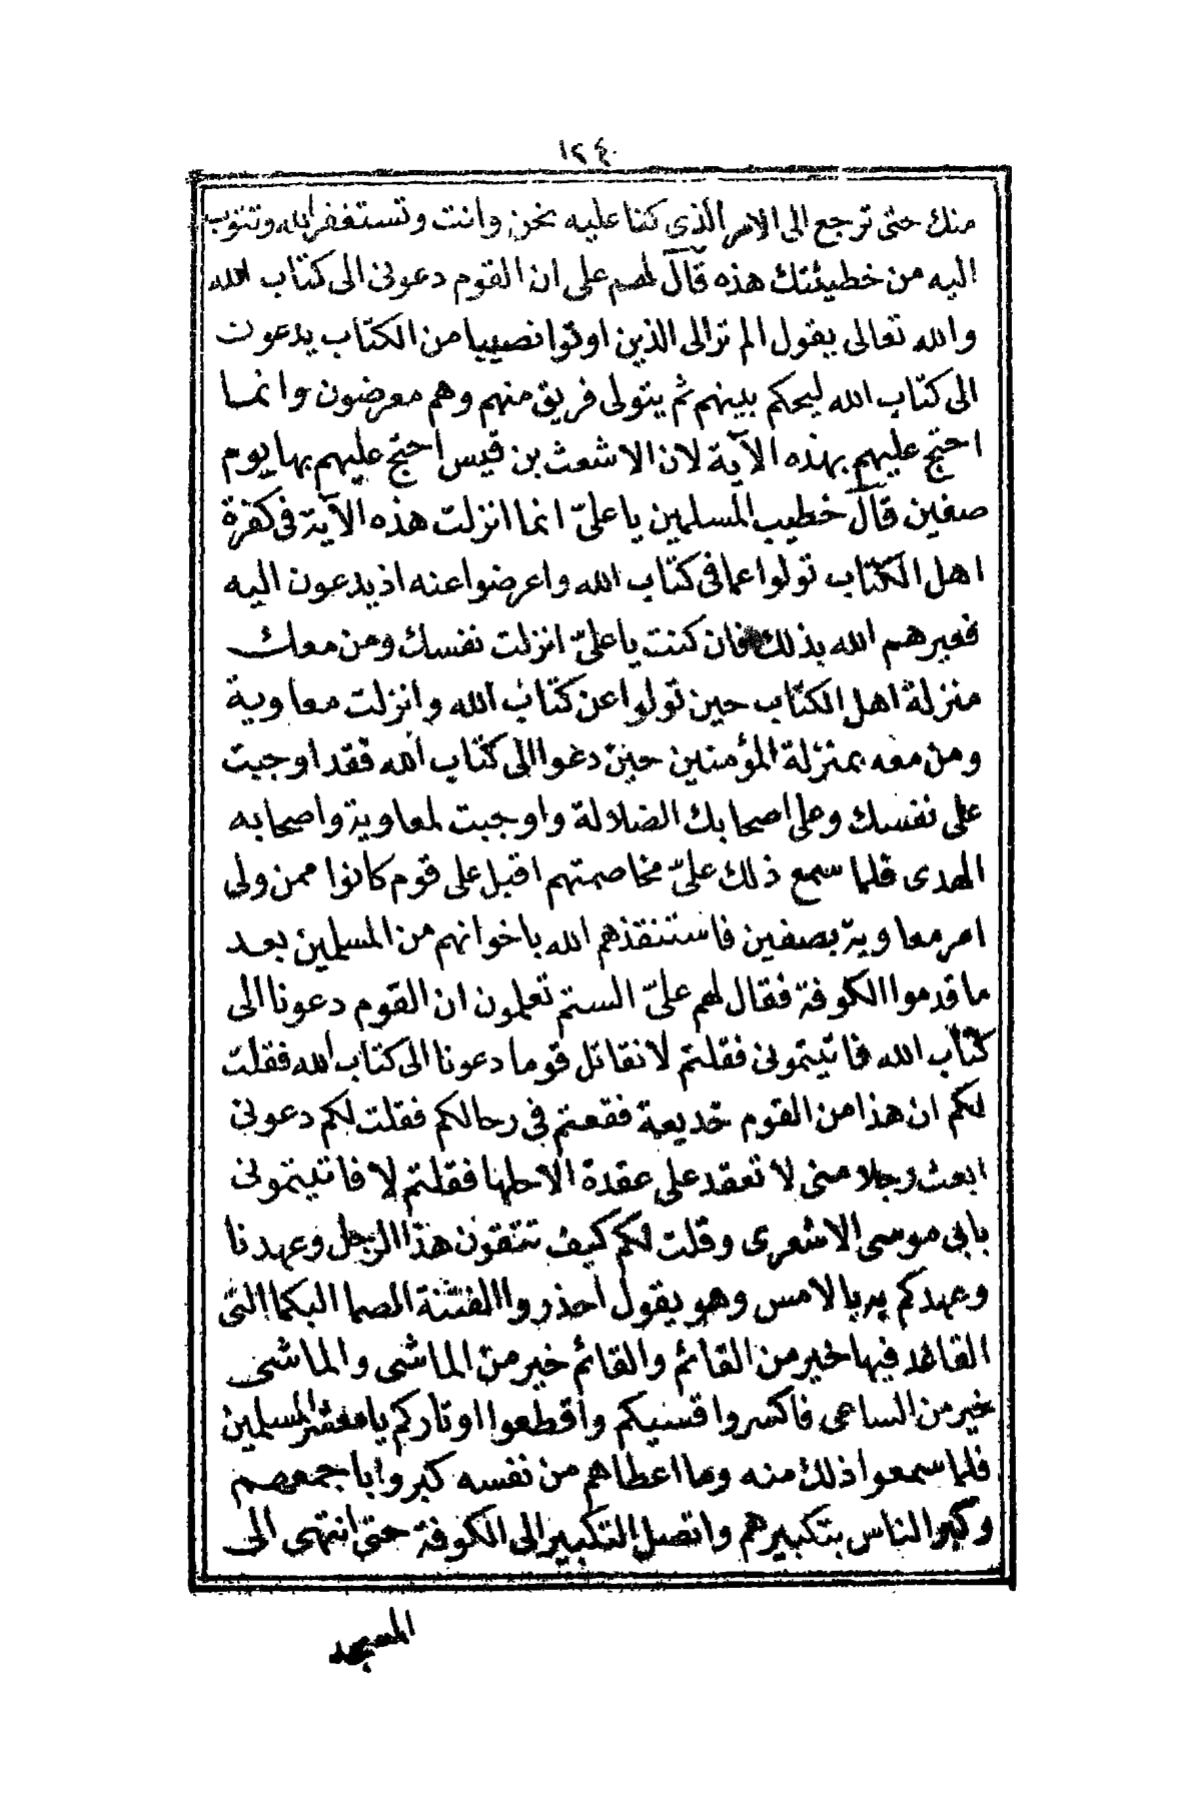 ١٢٤
منك حتى ترجع الى الامر الذى كنا عليه نحن وانت وتستغفر الله وتتوب
اليه من خطيئتك هذه قال لهم على ان القوم دعونى الى كتاب الله
والله تعالى يقول الم تر الى الذين اوتوا نصيبا من الكتاب يدعون
الى كتاب الله ليحكم بينهم ثم يتولى فريق منهم وهم معرضون وانما
احتج عليهم بهذه الآية لان الاشعث بن قيس احتج عليهم بها يوم
صفين قال خطيب المسلمين يا علىّ انما انزلت هذه الآية فى كفرة
اهل الكتاب تولوا عما فى كتاب الله واعرضوا عنه اذ يدعون اليه
فعيرهم الله بذلك فان كنت يا علىّ انزلت نفسك ومن معك
منزلة اهل الكتاب حين تولوا عن كتاب الله وانزلت معاوية
ومن معه بمنزلة المؤمنين حين دعوا الى كتاب الله فقد اوجبت
على نفسك وعلى اصحابك الضلالة واوجبت لمعاوية واصحابه
الهدى فلما سمع ذلك علىّ مخاصمتهم اقبل على قوم كانوا ممن ولى
امر معاوية بصفين فاستنقذهم الله باخوانهم من المسلمين بعد
ما قدموا الكوفة فقال لهم علىّ الستم تعلمون ان القوم دعونا الى
كتاب الله فاتيتمونى فقلتم لا نقاتل قوما دعونا الى كتاب الله فقلت
لكم ان هذا من القوم خديعة فقعتم فى رحالكم فقلت لكم دعونى
ابعث رجلا منى لا تعقد على عقدة الا حلها فقلتم لا فاتيتمونى
بابى موسى الاشعرى وقلت لكم كيف تتقون هذا الرجل وعهدنا
وعهدكم به بالامس وهو يقول احذروا الفتنة الصما البكما التى
القاعد فيها خير من القائم والقائم خير من الماشى والماشى
خير من الساعى فاكسروا قسيكم واقطعوا اوتاركم يا معشر المسلمين
فلما سمعوا ذلك منه وما اعطاهم من نفسه كبروا باجمعهم
وكبر الناس بتكبيرهم واتصل التكبير الى الكوفة حتى انتهى الى
المسجد